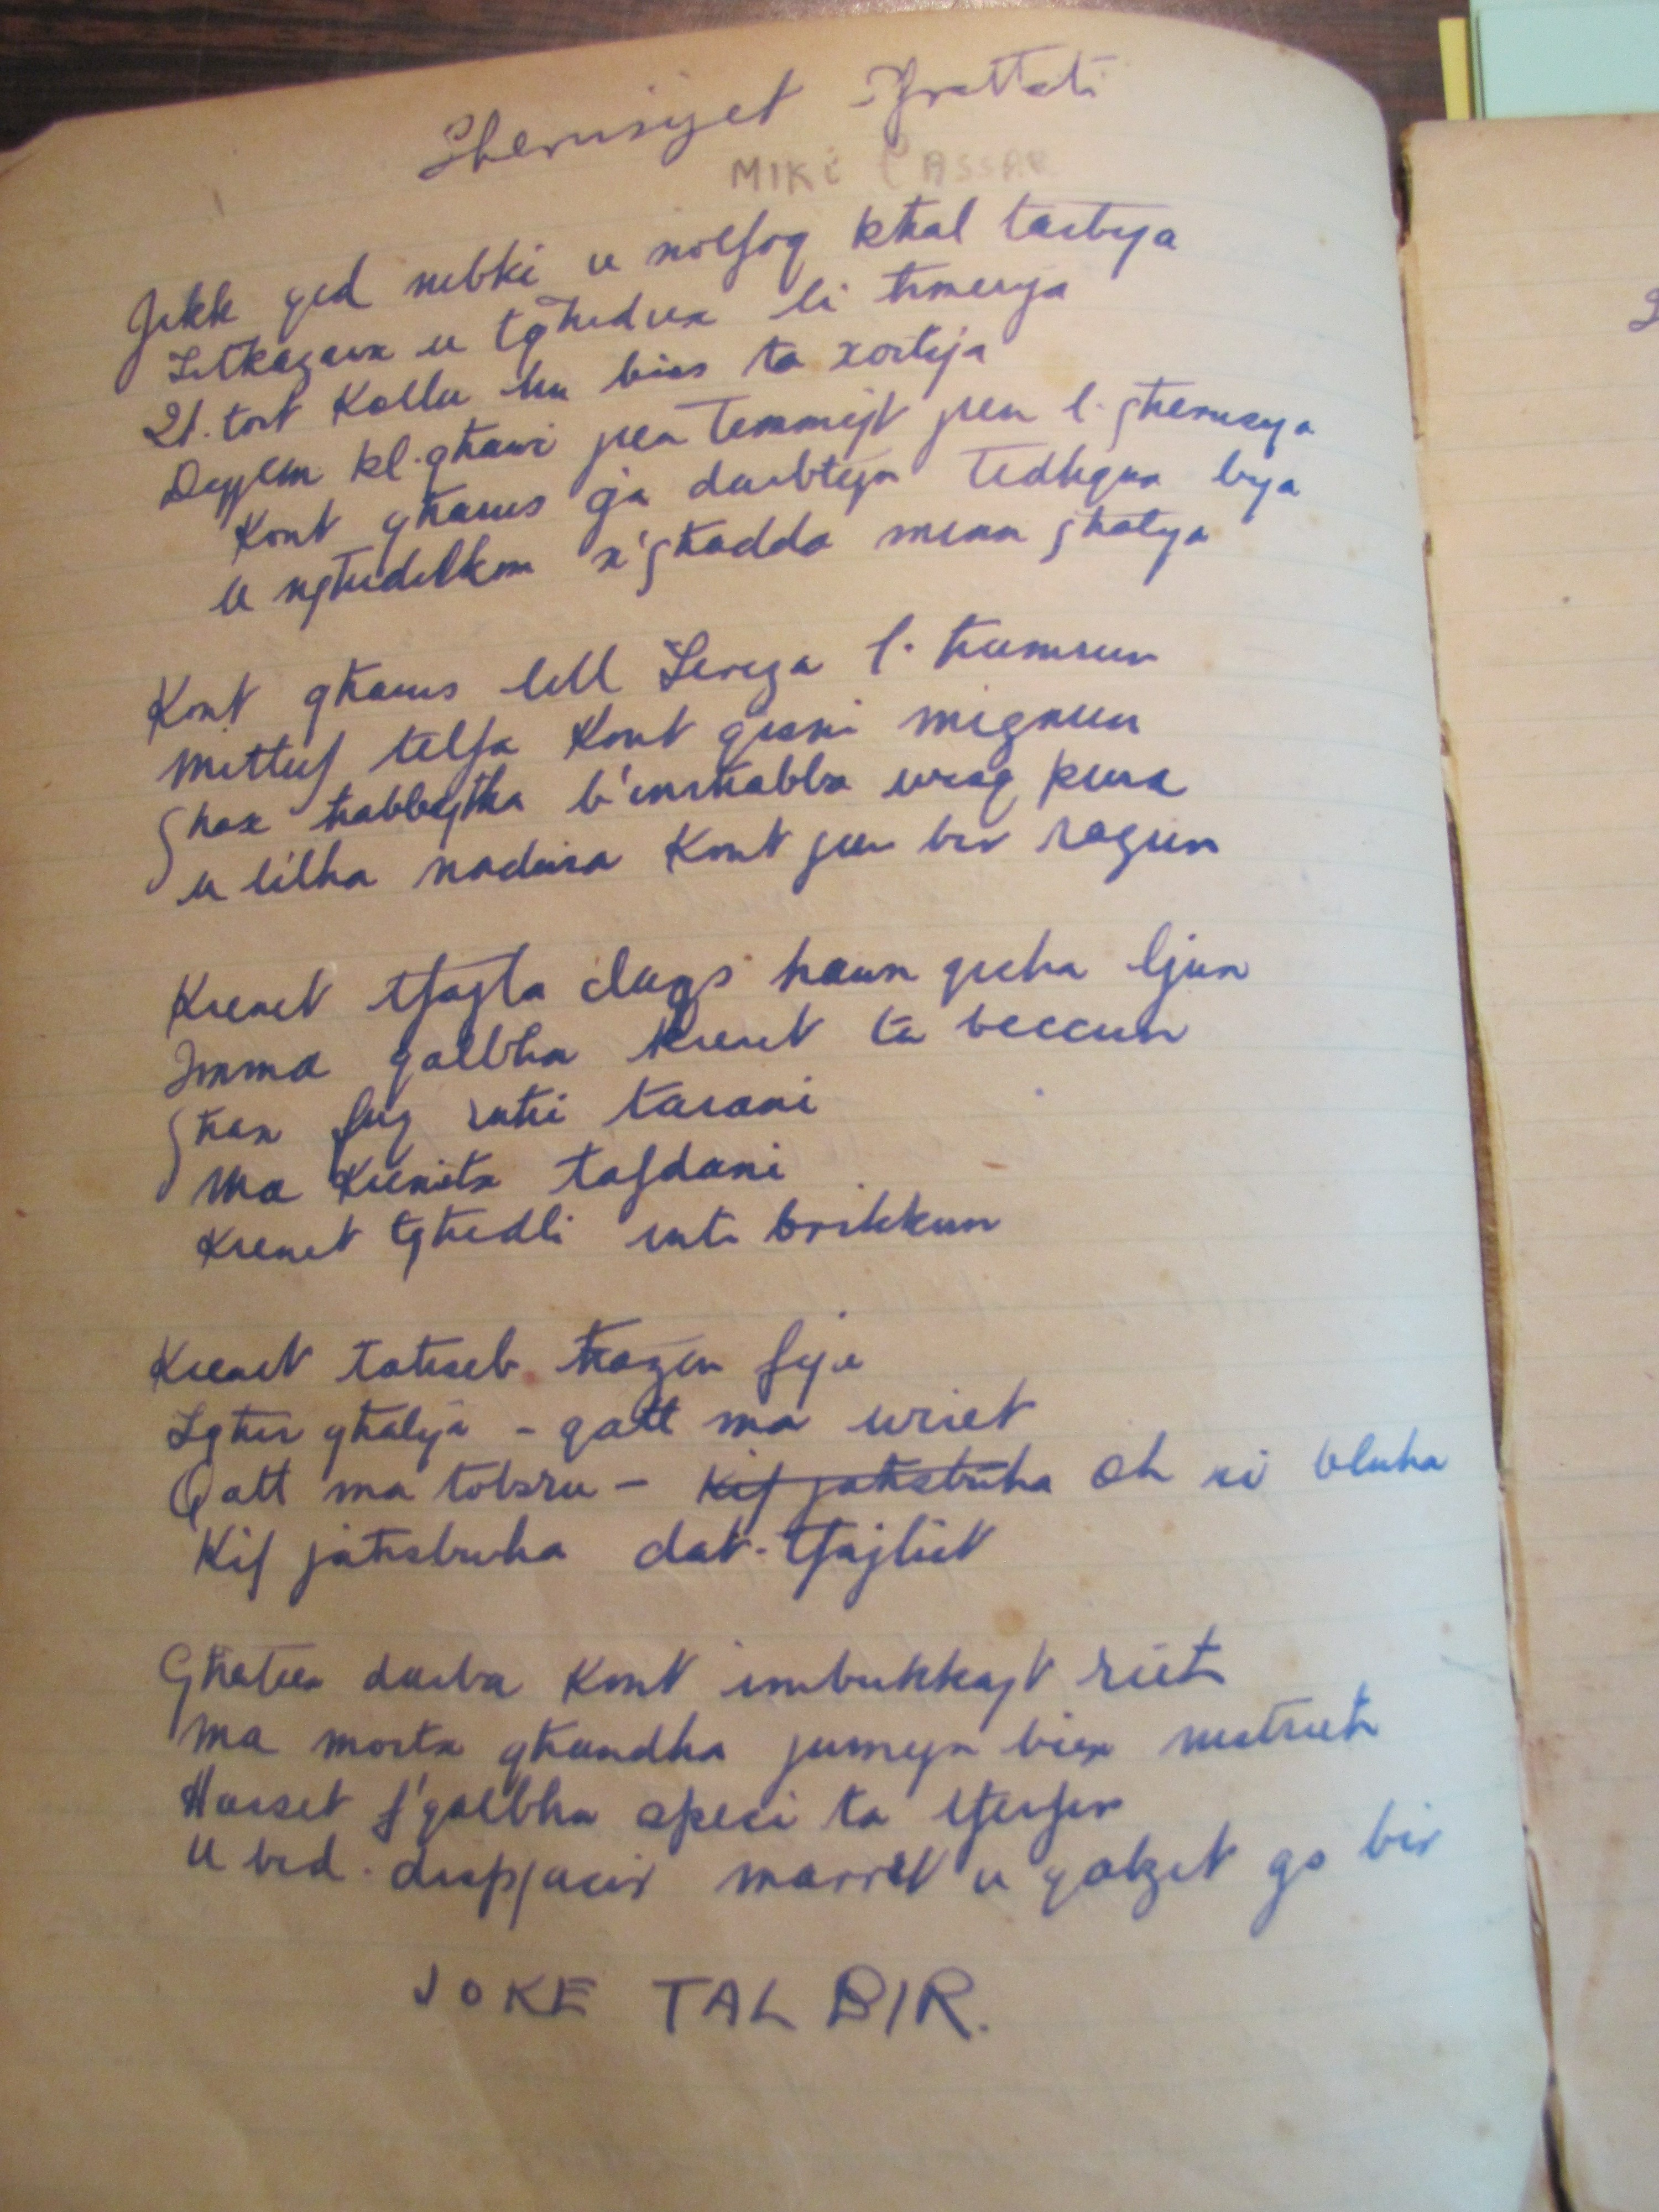 MIKI CASSAR
Jekk qed nibki u nolfoq bħal tarbija
u tgħidux li
It-tort kollu hu biss ta xortija
Dejjem bl-għawi jien Temmejt jien l-għerusija
Kont għarus ġa darbtejn Tidħqux bija
U ngħidilkom x'għadda minn għalija
Kont għarus lill Tereża l-ħamsin
Mittuf telfa kont qisni miġnun
Għax ħabbejtha b'imħabba wisq pura
U lilha nadura kont jien bir raġun
Kienet tfajla daqs hawn qisha ljun
Imma qalbha kienet ta beccun
Għax fuq ruħi tarani
Ma kienitx tafdani
Kienet tgħidli inti brikkun
Kienet taħseb ħażin fija
Lgħir għalija - qatt ma wriet
Qatt ma tobsru - Kif jaħsbuha oh xi bluha
Kif jaħsbuha dat-tfajliet
Għaliex darba kont imbukkajt rieħ
ma mortx għandha jumejn biex nistrieħ
Ħasset f'qalbha speċi ta
U bid-dispjaċir marret u qabżet ġo bir
JOKE TAL BIR.